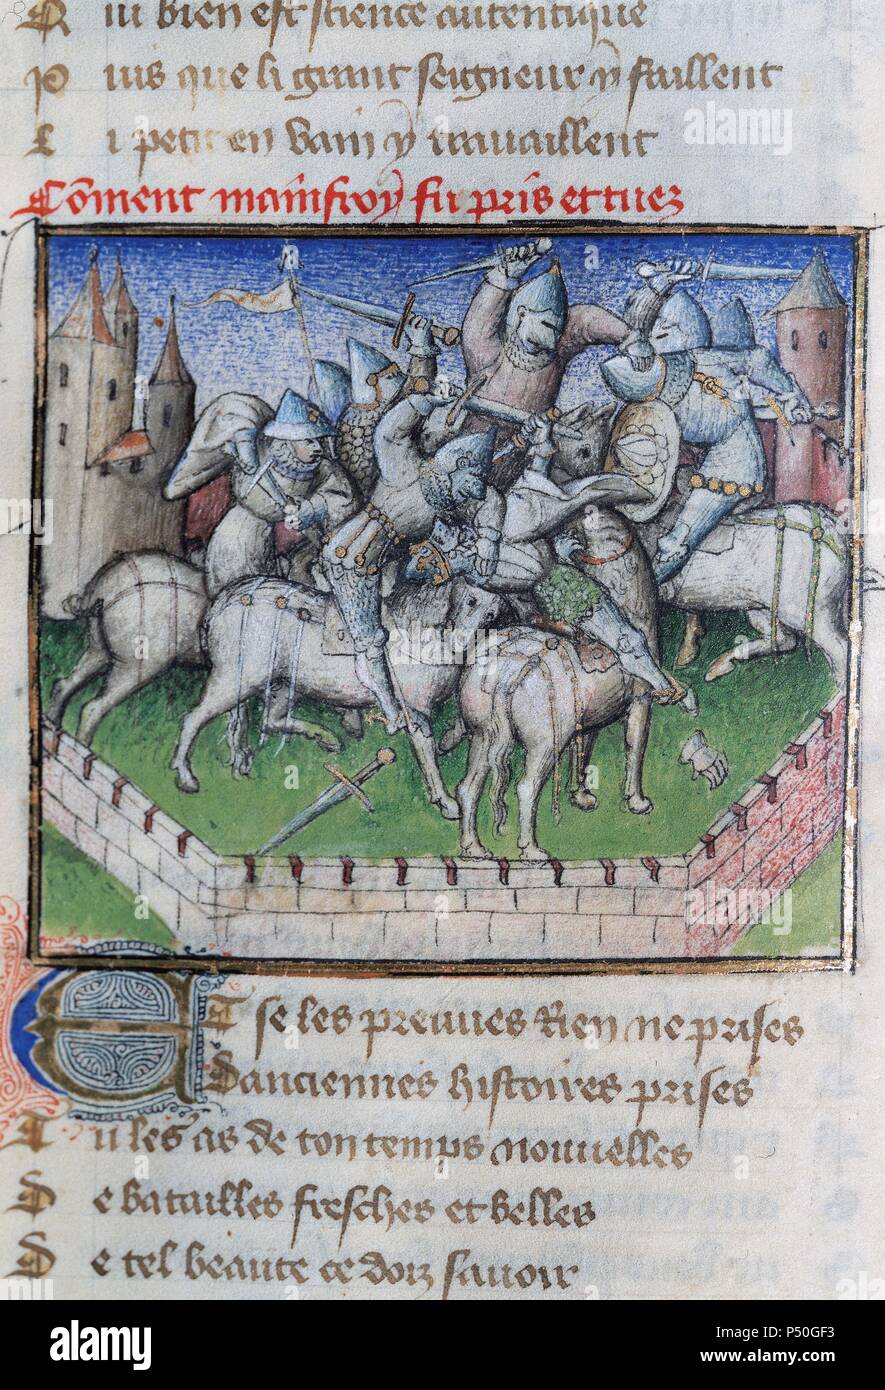 Qui bien est science autentique
Puis que li grant seigneur y faillent
Li petit en vain y travaillent
Cōment mainfroy fu pris et tuez
Et se les preuves Rien ne prises
Danciennes histoires prises
Tu les as de ton temps nouvelles
De batailles fresches et belles
De tel beaute ce doiz savoir
alamy
Image ID: P50GF3
www.alamy.com